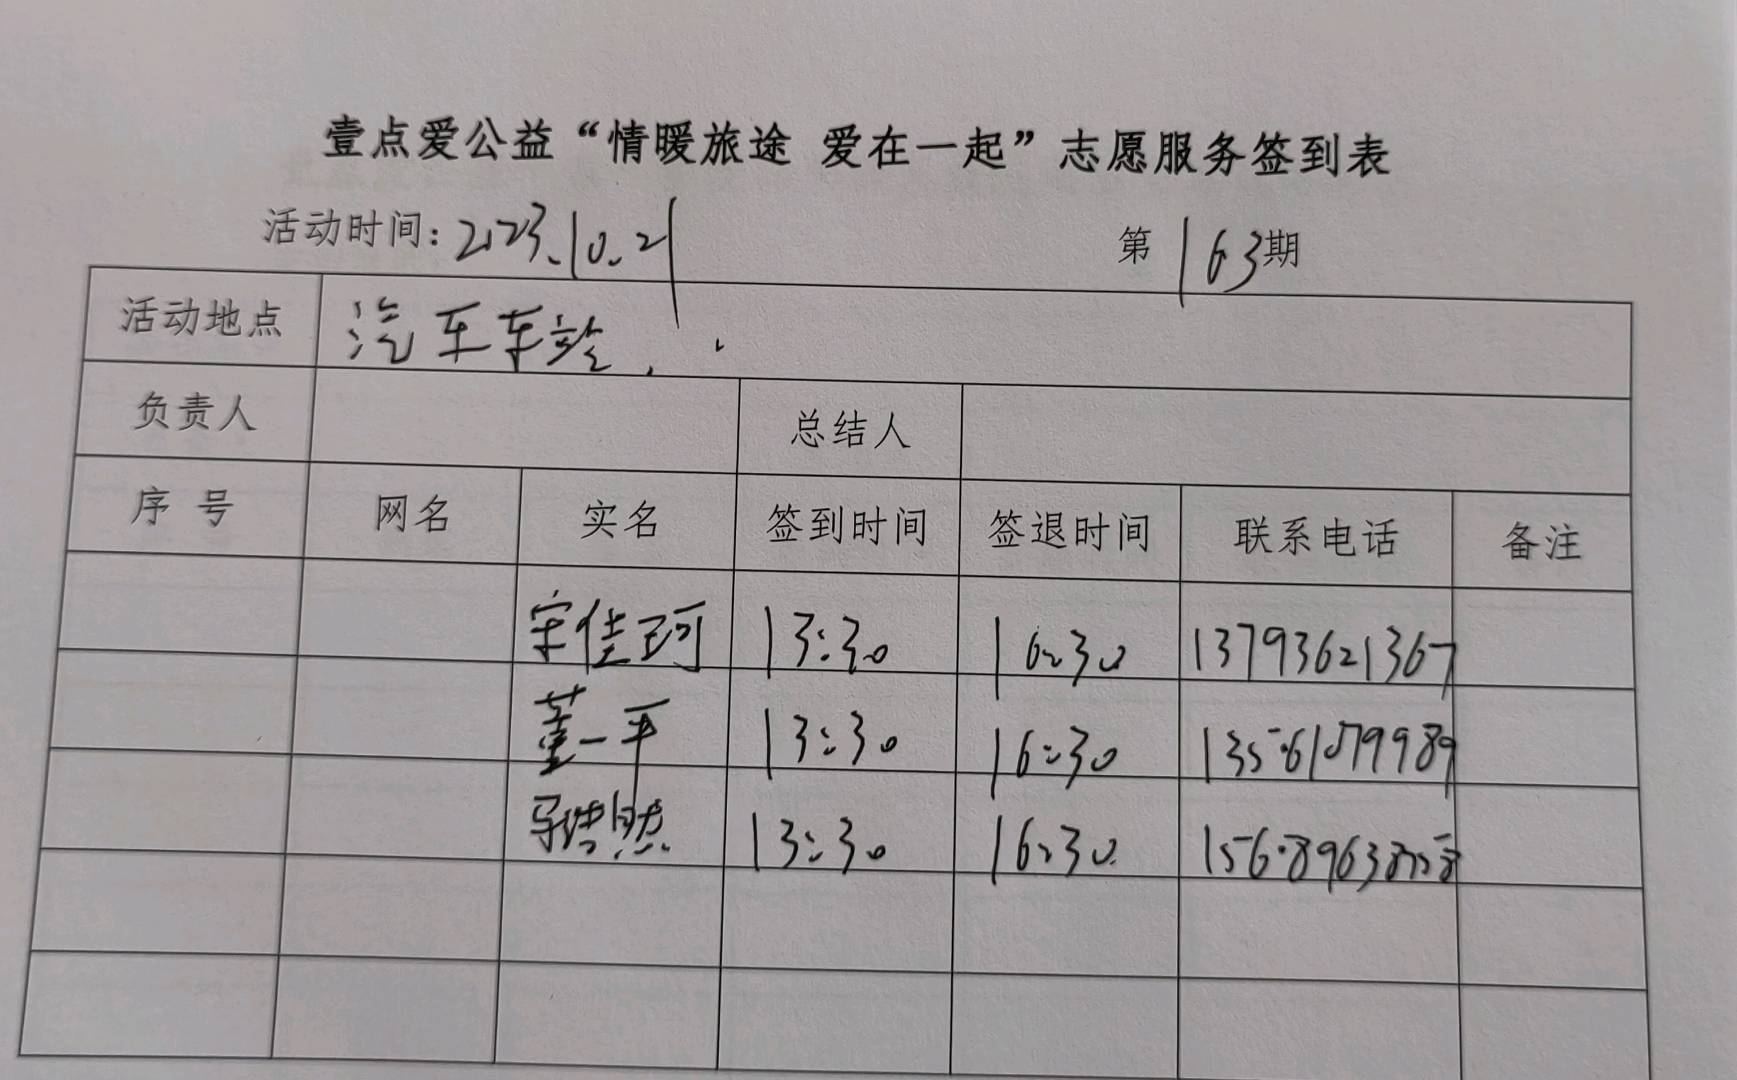 壹点爱公益“情暖旅途 爱在一起”志愿服务签到表
活动时间: 2023.10.21 第163期
活动地点 汽车车站
负责人 总结人
序号 网名 实名 签到时间 签退时间 联系电话 备注
宋佳珂 13:30 16:30 13793621367
董一平 13:30 16:30 13561079989
13:30 16:30